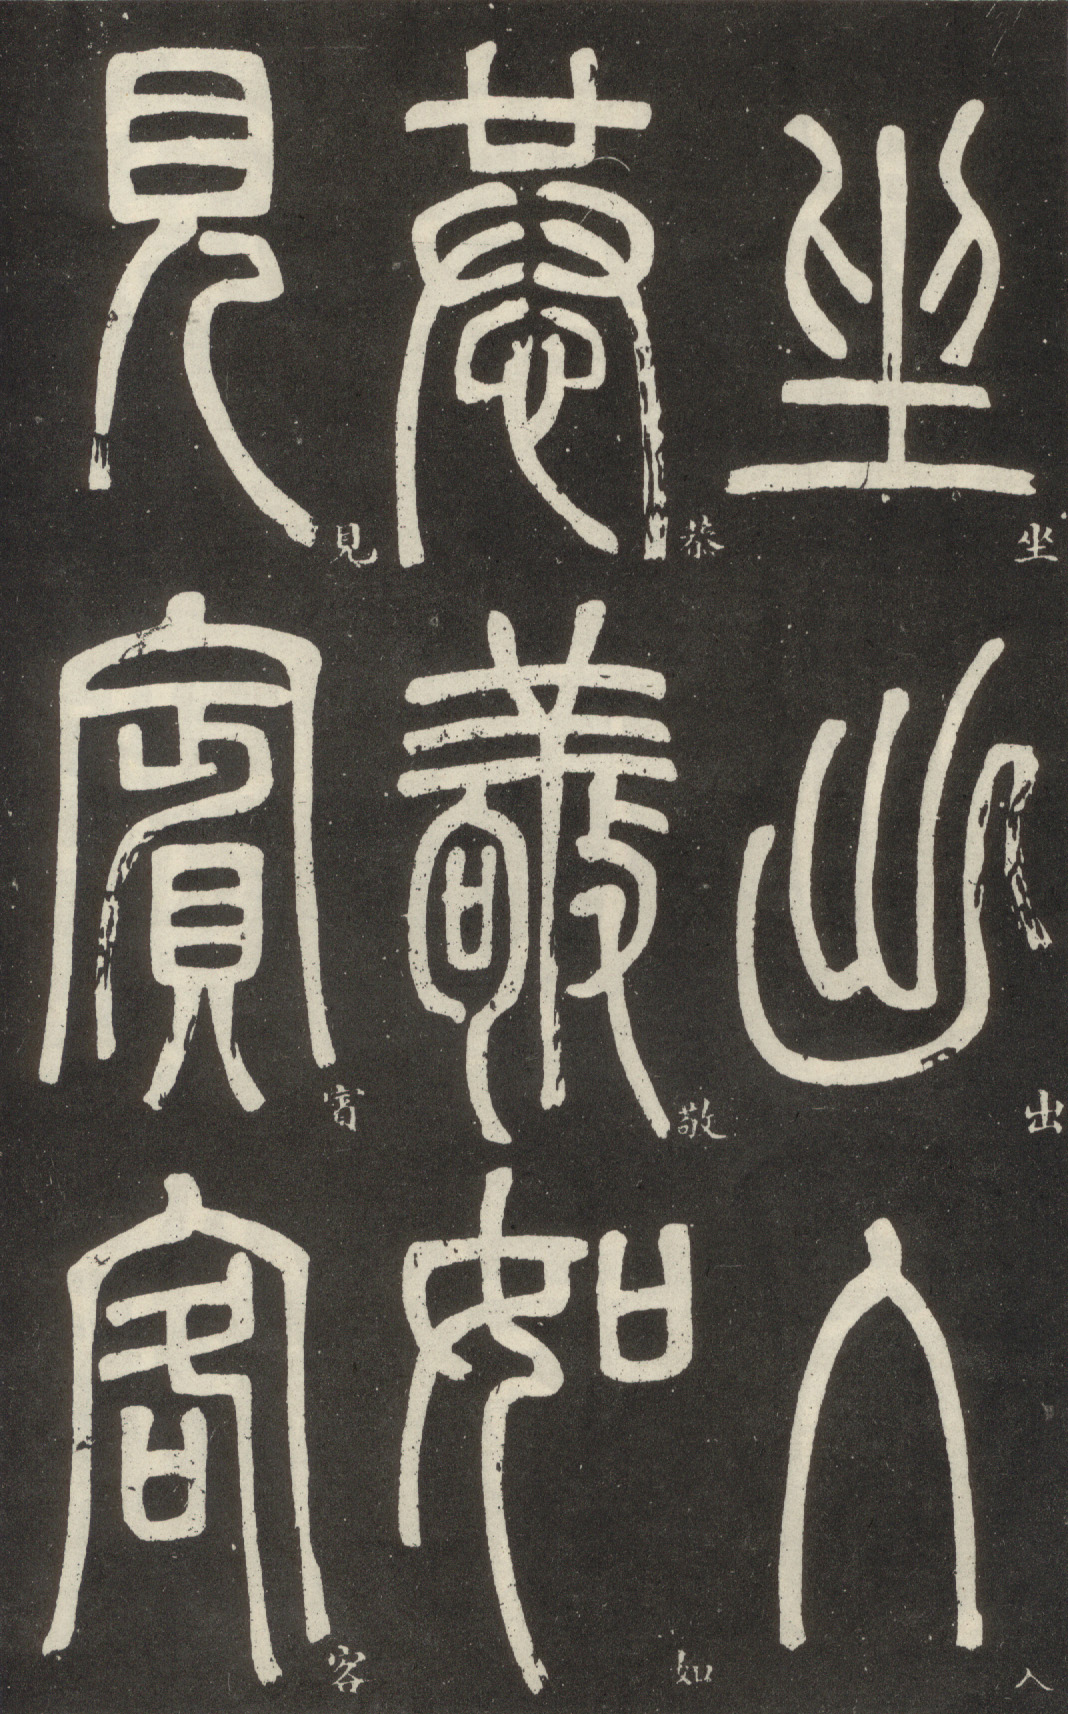 坐出入
坐出入
恭敬如
恭敬如
見賓客
見賓客